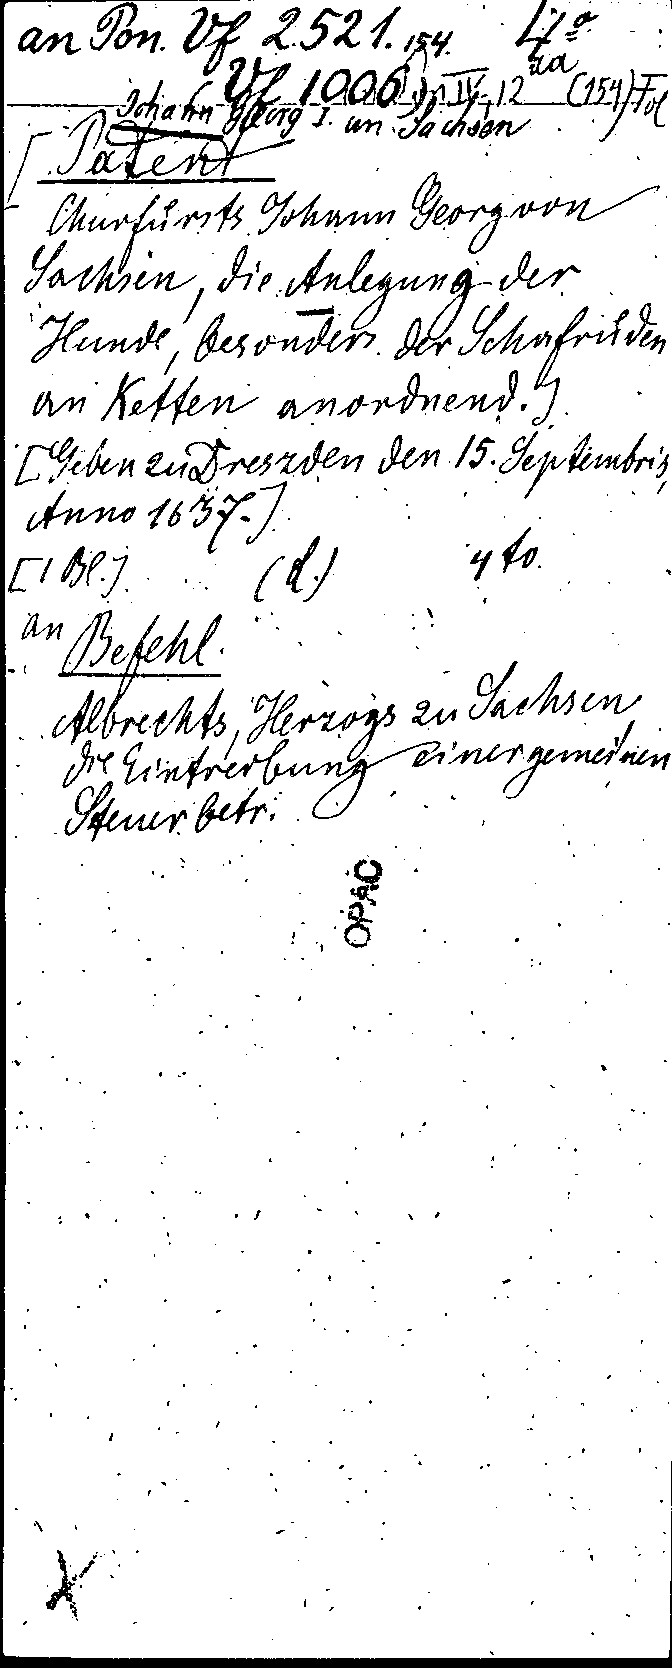 an Pon. Vf 2521. 154. 4º
Vf 1006 n IV, 12 (154) Fol
Johann Georg I. an Sachsen
[Patent
Churfürsts Johann Georg von
Sachsen, die Anlegung der
Hunde, besonders der Schafrüden
an Ketten anordnend.]
[Geben zu Dreszden den 15. Septembris,
Anno 1637.]
[1 Bl.] (d.) 4to.
an Befehl.
Albrechts, Herzogs zu Sachsen,
die Eintreibung einer gemeinen
Steuer betr.
OPAC